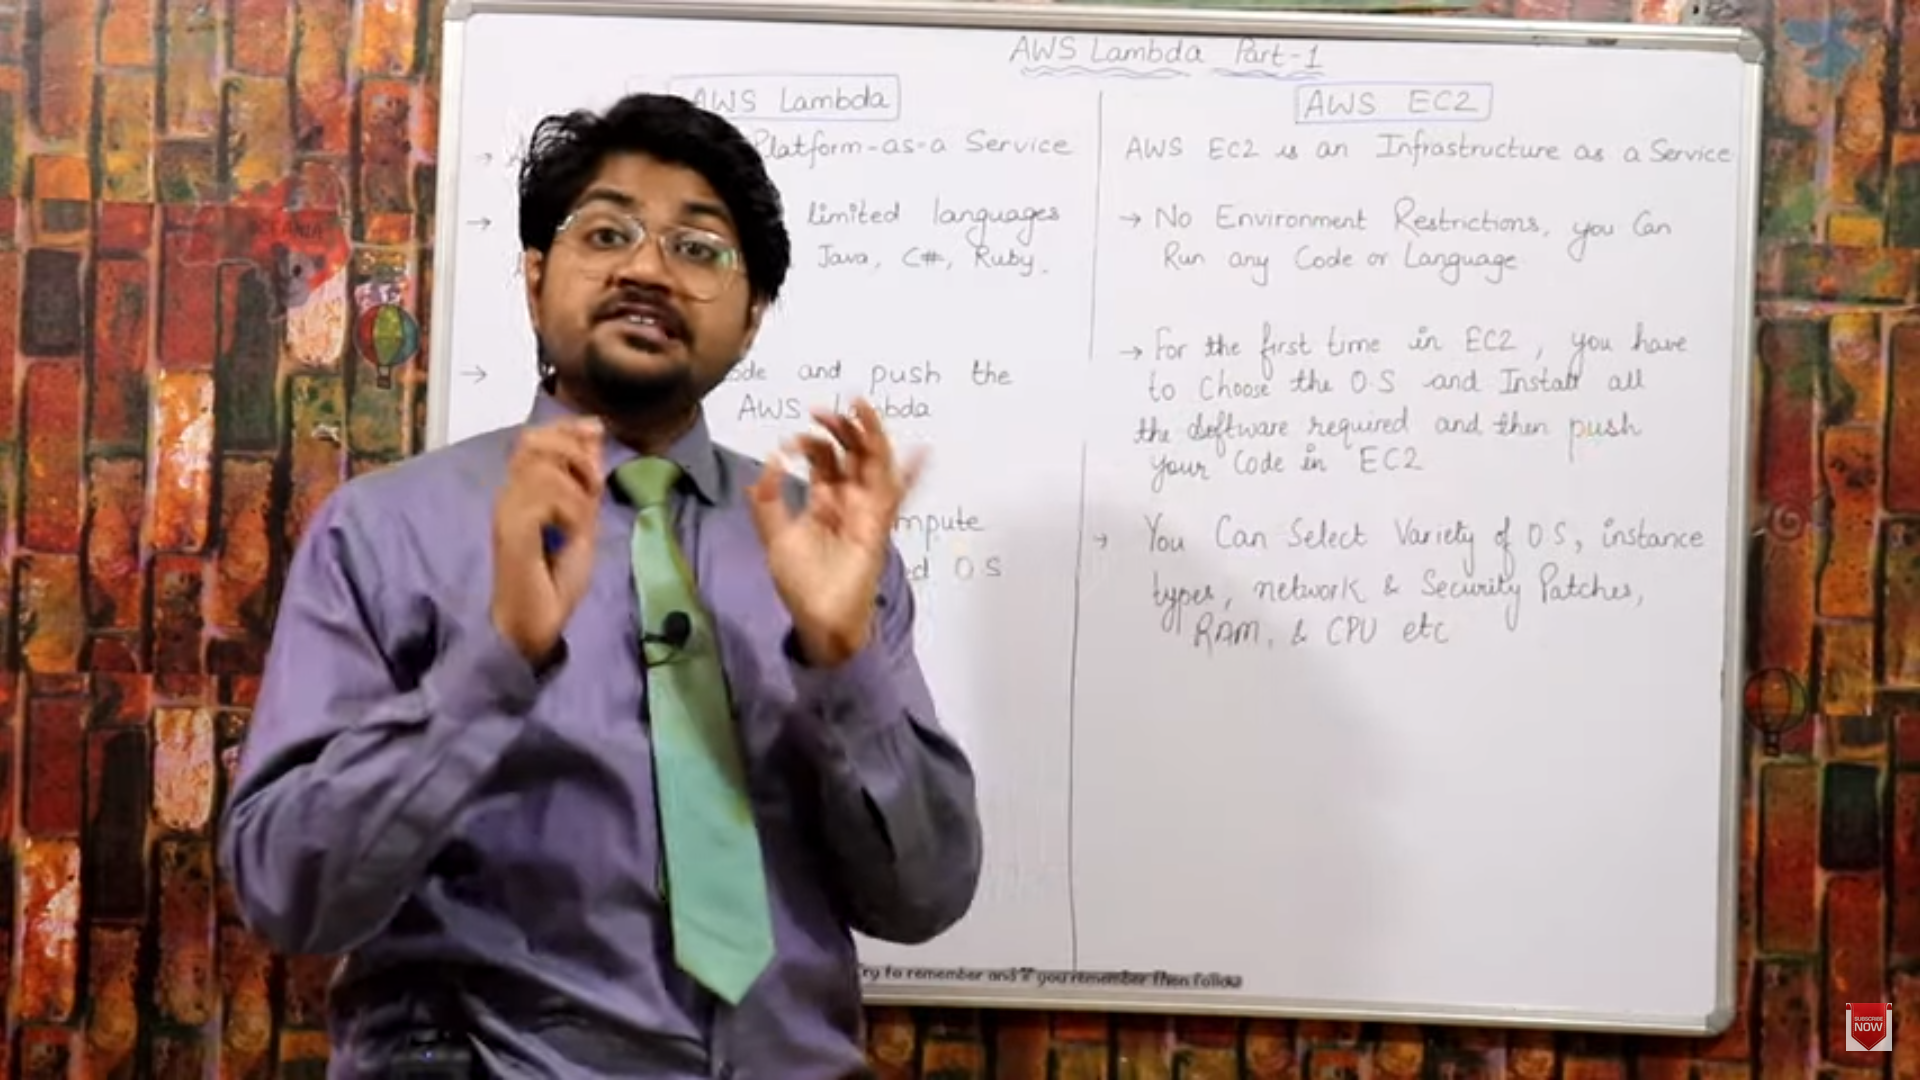 AWS Lambda Part-1
AWS Lambda
Platform-as-a Service
limited languages
Java, C#, Ruby.
and push the
AWS Lambda
OS
AWS EC2
AWS EC2 is an Infrastructure as a Service
→ No Environment Restrictions, you Can
Run any Code or Language
→ For the first time in EC2, you have
to Choose the O.S and Install all
the software required and then push
your Code in EC2
→ You Can Select Variety of OS, instance
types, network & Security Patches,
RAM, & CPU etc
to remember and if you remember then follow
SUBSCRIBE
NOW